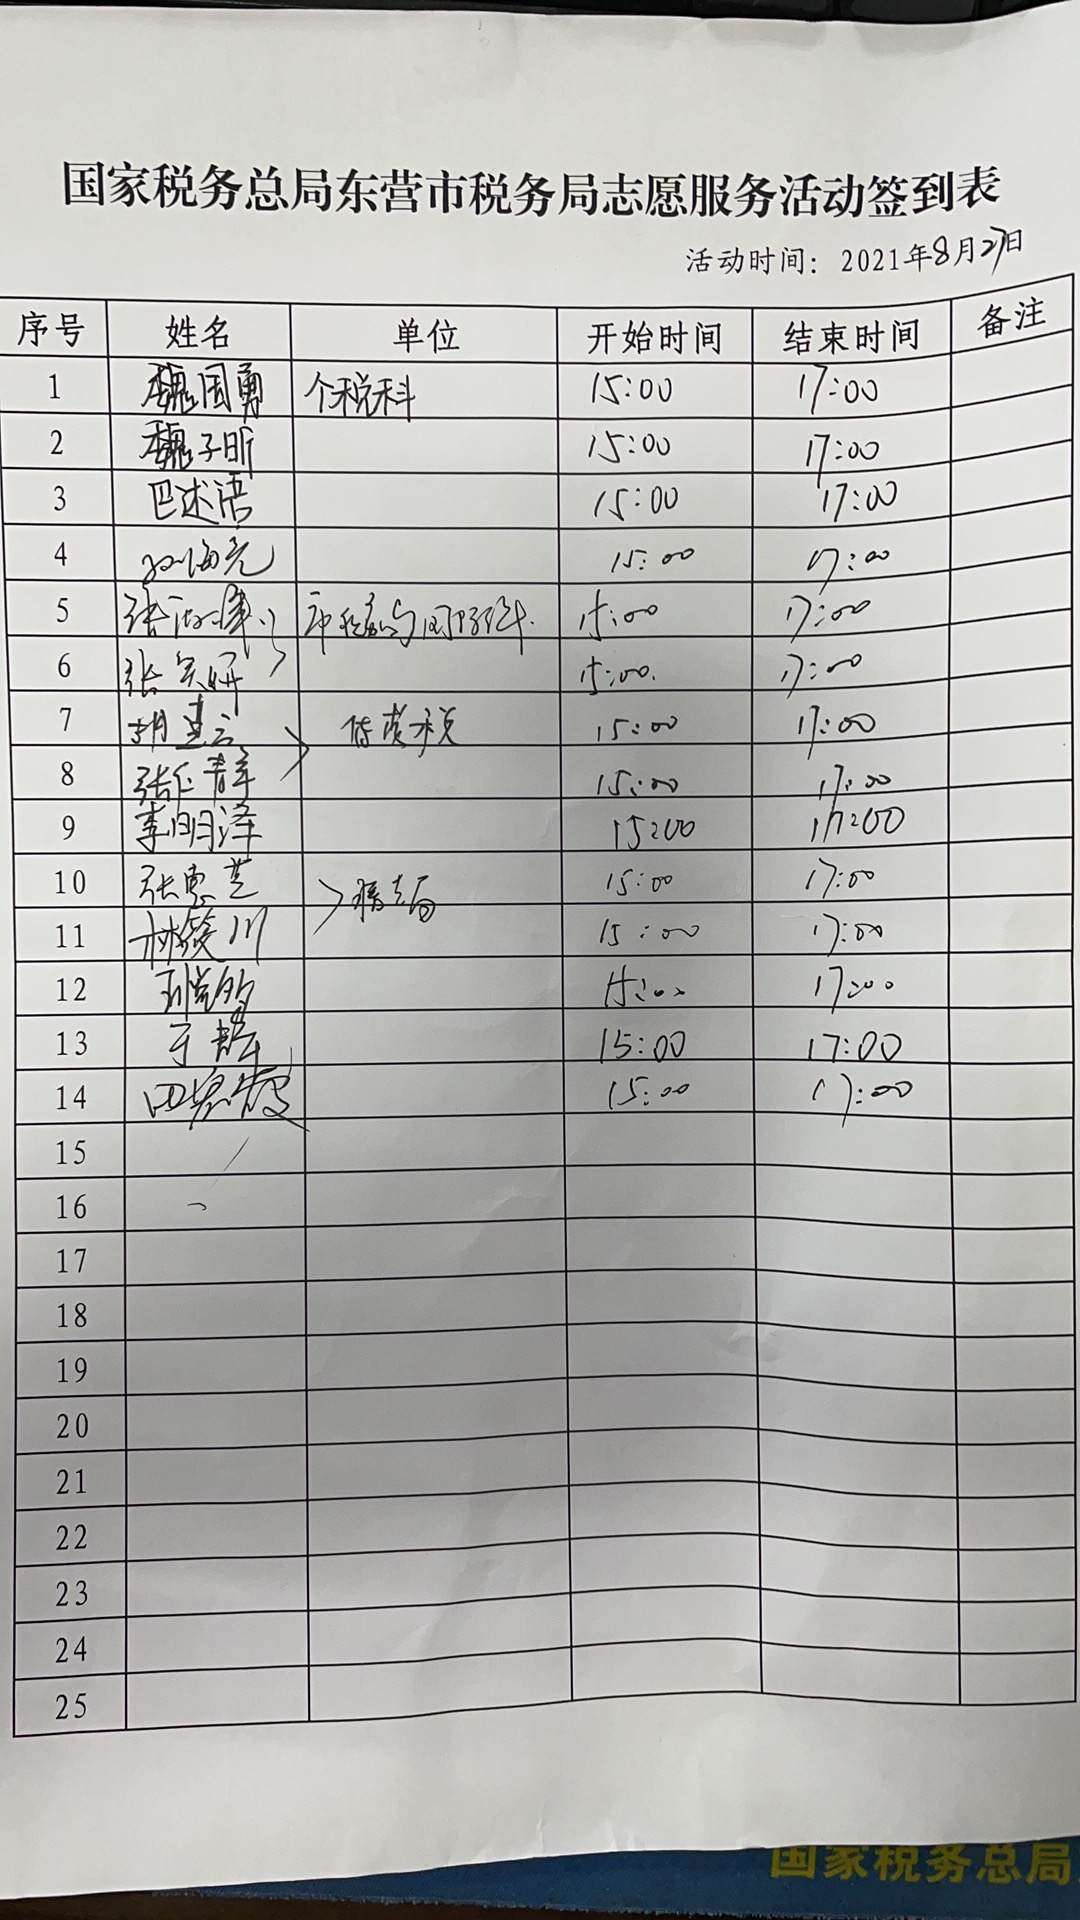 国家税务总局东营市税务局志愿服务活动签到表
活动时间：2021年8月27日
序号 姓名 单位 开始时间 结束时间 备注
1 魏国勇 个税科 15:00 17:00
2 魏子昕 15:00 17:00
3 巴述语 15:00 17:00
4 孙海亮 15:00 17:00
5 张 15:00 17:00
6 张 妍 15:00 17:00
7 胡 15:00 17:00
8 张 15:00 17:00
9 李明泽 15:00 17:00
10 张惠芝 稽查局 15:00 17:00
11 林 川 15:00 17:00
12 15:00 17:00
13 于 15:00 17:00
14 田 15:00 17:00
15
16
17
18
19
20
21
22
23
24
25
国家税务总局